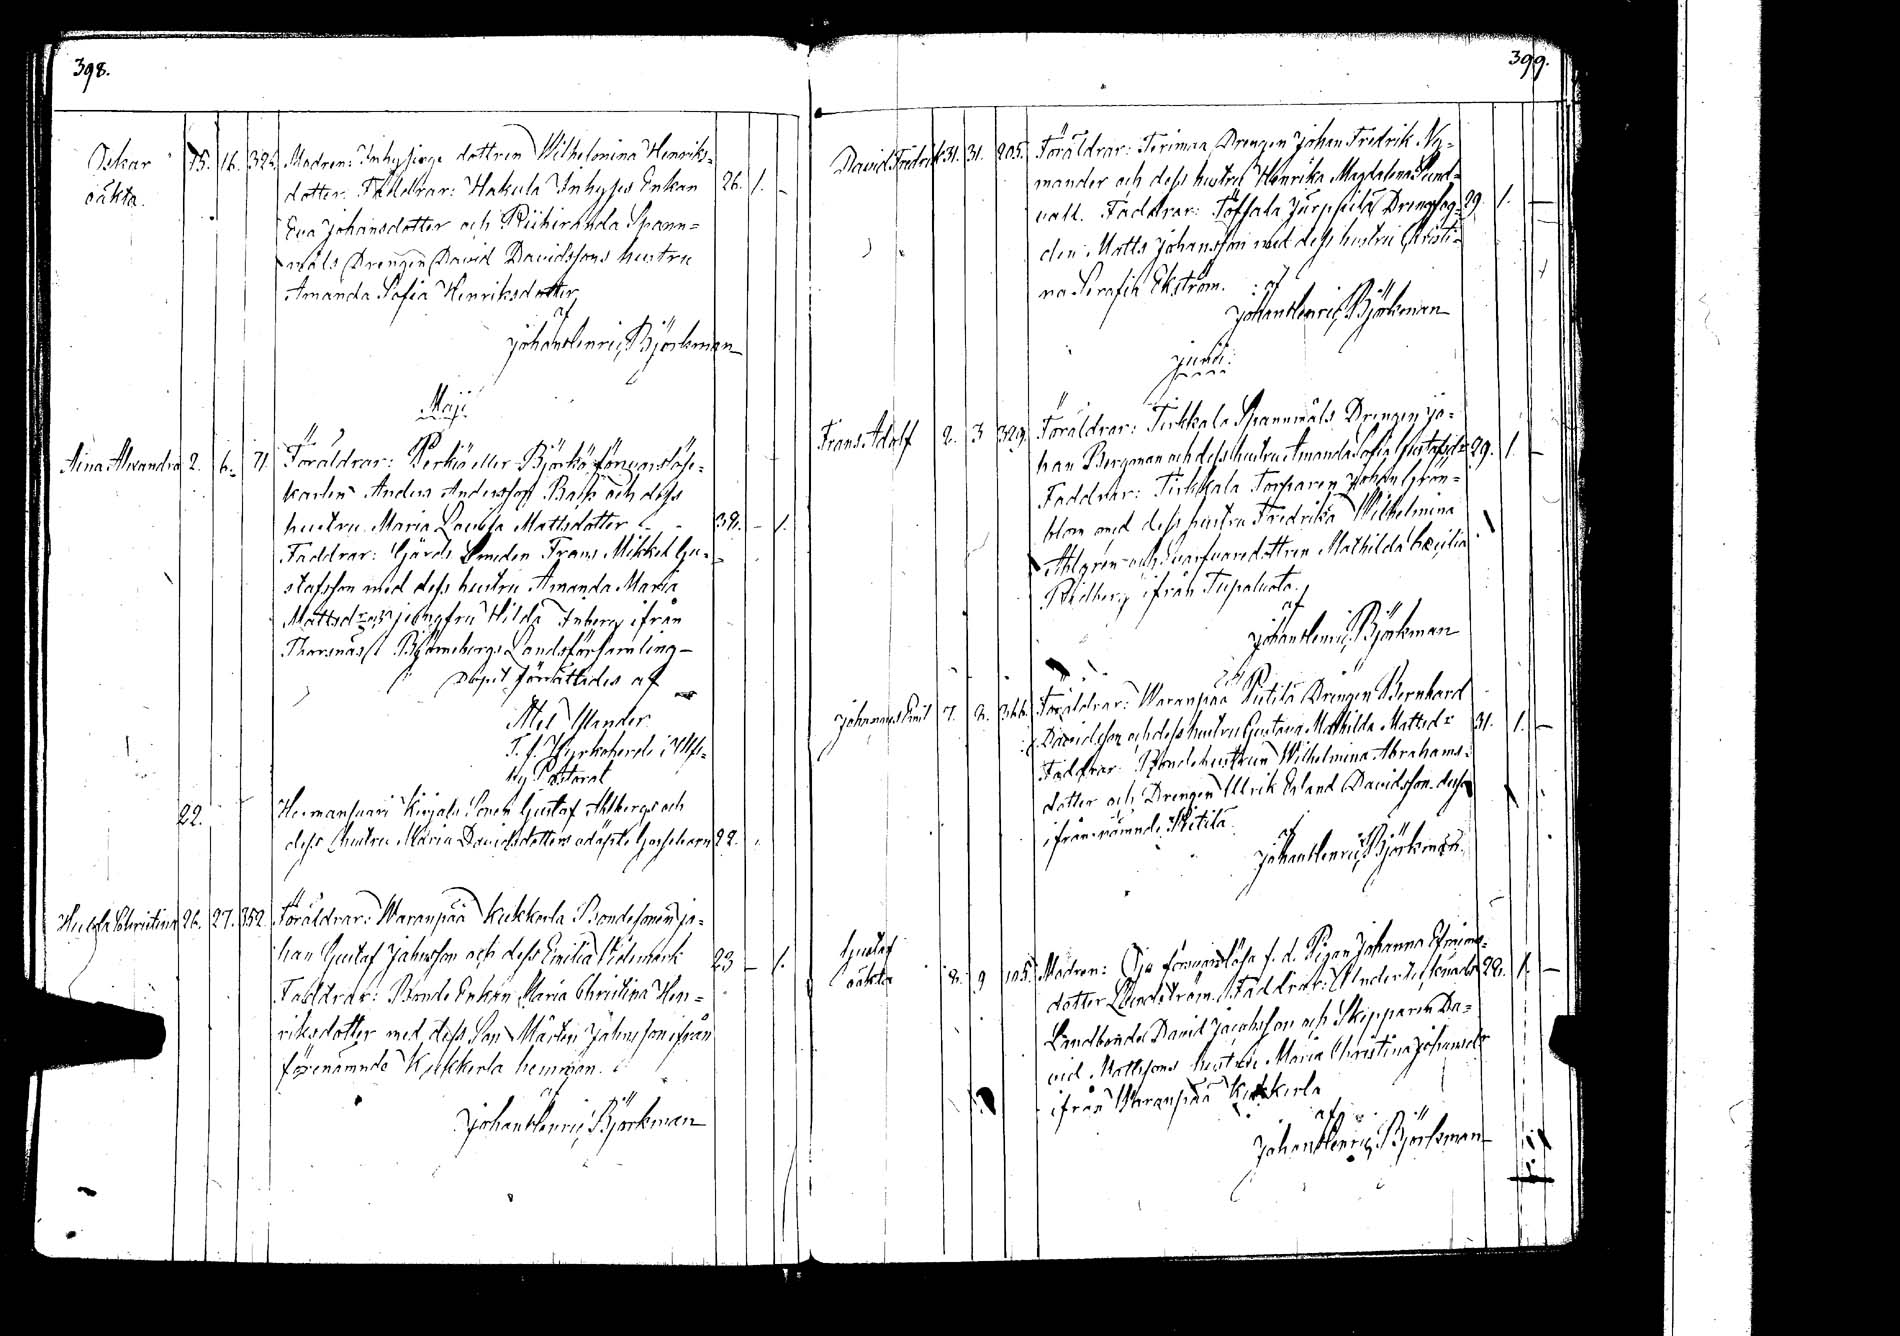 398.
Oskar 15. 16. 326. Modren: Inhysings dottren Wilhelmina Henriks=
oäkta. dotter. Faddrar: Hakula Inhyses Enkan 26. 1. –
Eva Johansdotter och Riihiranda Spann=
måls Drengen David Davidssons hustru
Amanda Sofia Henriksdotter
af
Johan Henric Björkman
Maji
Aina Alexandra 2. 6. 71. Föräldrar: Perkiö eller Björkö försvarslöse=
karlen Anders Andersson och dess
hustru Maria Lovisa Mattsdotter 39. – 1.
Faddrar: Gårds Smeden Frans Mikkel Gu=
stafsson med dess hustru Amanda Maria
Mattsdr och jungfru Hilda Inberg ifrån
Thorsnäs i Björneborgs Landsförsamling –
Dopet förrättades af
T. f. Kyrkoherde i Ulfs=
by Pastorat
22. Kirjala Sonen Gustaf Ahlbergs och
dess hustru Maria Davidsdotters odöpte Gossebarn 22.
Hulda Christina 26. 27. 352. Föräldrar: Waranpää Kukkola Bondesonen Jo=
han Gustaf Johnsson och dess Emilia Widemark 23 – 1.
Faddrar: Bonde Enkan Maria Christina Hen=
riksdotter med dess Son Mårten Johnsson ifrån
förenämnde Kukkola hemman.
af
Johan Henric Björkman
399.
David Fredrik 31. 31. 205. Föräldrar: Drengen Johan Fredrik Ny=
mander och dess hustru Henrika Magdalena Sund=
vall. Faddrar: Drengfog= 29. 1. –
den Matts Johansson med dess hustru Christi=
na Serafia Ekström. af
Johan Henric Björkman
Junii.
Frans Adolf 2. 3 329. Föräldrar: Tirkkala Spannmåls Drengen Jo=
han Bergman och dess hustru Amanda Sofia Gustafsdr 29. 1. –
Faddrar: Tirkkala Torparen Johan Grön=
blom med dess hustru Fredrika Wilhelmina
Ahlgren och dottren Mathilda Cecilia
Ridberg ifrån Tupaluoto.
af
Johan Henric Björkman
Johannes Emil 7. 8. 366. Föräldrar: Waranpää Pietilä Drengen Bernhard
Davidsson och dess hustru Gustava Mathilda Mattsdr 31. 1. –
Faddrar: Bondehustrun Wilhelmina Abrahams=
dotter och Drengen Ulrik Erland Davidsson dessa
ifrån nämnde Pietilä.
af
Johan Henric Björkman.
Gustaf
oäkta 8. 9 105. Modren: försvarslösa f. d. Pigan Johanna Efraims=
dotter Lindström. Faddrar: 22. 1. –
Landbonden David Jacobsson och Skepparen Da=
vid Mattssons hustru Maria Christina Johansdr
ifrån Waranpää Kukkola
af
Johan Henric Björkman